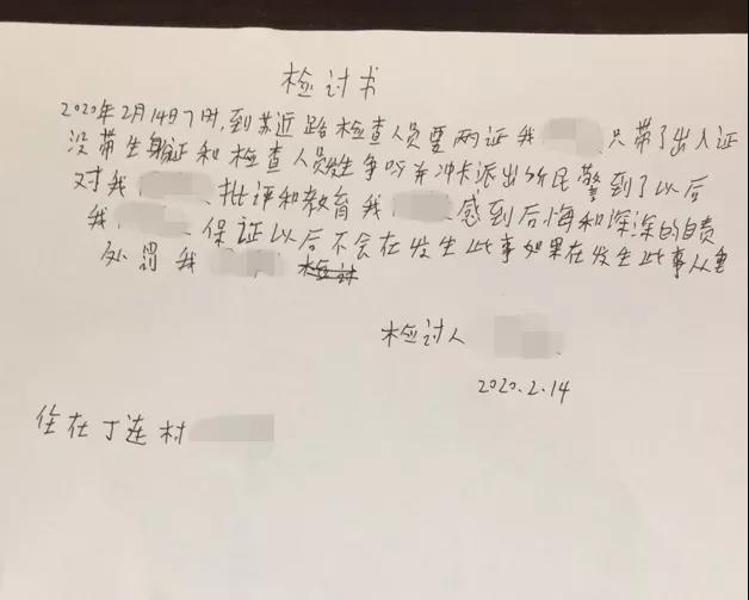 检讨书
2020年2月14日7时,到苏近路检查人员要两证我 只带了出入证
没带生身证和检查人员发生争吵并冲卡派出所民警到了以后
对我 批评和教育我 感到后悔和深深的自责
我 保证以后不会在发生此事如果在发生此事从重
处罚我
检讨人
2020.2.14
住在丁连村